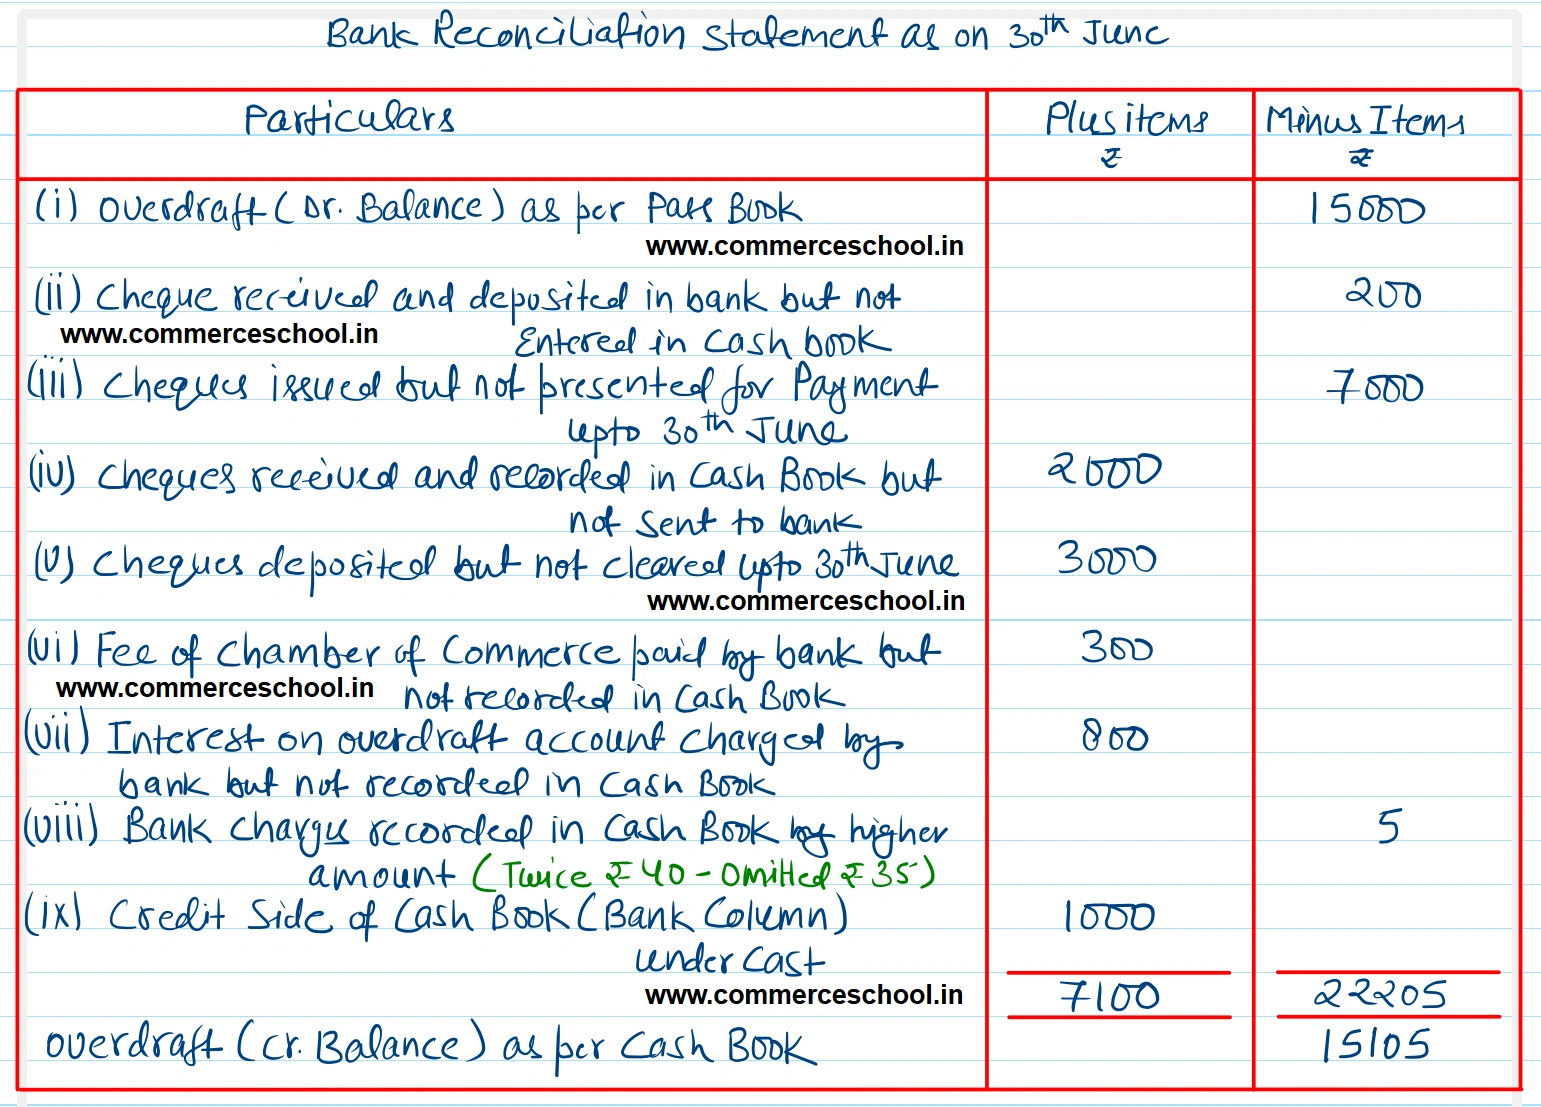 Bank Reconciliation Statement as on 30th June
Particulars Plus items Minus Items
₹ ₹
(i) Overdraft (Dr. Balance) as per Pass Book 15000
www.commerceschool.in
(ii) Cheque received and deposited in bank but not 200
www.commerceschool.in Entered in Cash book
(iii) Cheques issued but not presented for Payment 7000
upto 30th June
(iv) Cheques received and recorded in Cash Book but 2000
not sent to bank
(v) Cheques deposited but not cleared upto 30th June 3000
www.commerceschool.in
(vi) Fee of Chamber of Commerce paid by bank but 300
www.commerceschool.in not recorded in Cash Book
(vii) Interest on overdraft account charged by 800
bank but not recorded in Cash Book
(viii) Bank Charges recorded in Cash Book by higher 5
amount (Twice ₹40 - omitted ₹35)
(ix) Credit Side of Cash Book (Bank Column) 1000
under Cast
www.commerceschool.in 7100 22205
Overdraft (Cr. Balance) as per Cash Book 15105